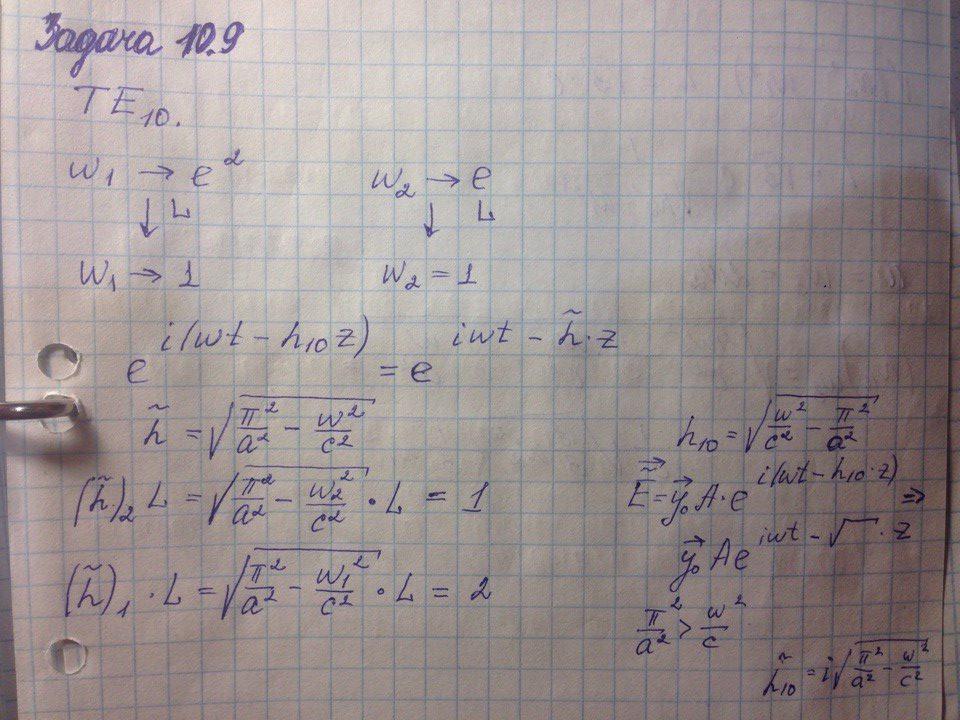 Задача 10.9
TE₁₀.
w₁ → e²    w₂ → e
↓ L    ↓ L
w₁ → 1    w₂ = 1
e^{i(wt − h₁₀z)} = e^{iwt − h̃·z}
h̃ = √(π²/a² − w²/c²)
(h̃)₂ L = √(π²/a² − w₂²/c²) · L = 1
(h̃)₁ · L = √(π²/a² − w₁²/c²) · L = 2
h₁₀ = √(w²/c² − π²/a²)
E⃗̃ = y⃗₀ A · e^{i(wt − h₁₀·z)} ⇒
y⃗₀ A e^{iwt − √‾ · z}
π²/a² > w²/c
h̃₁₀ = i√(π²/a² − w²/c²)